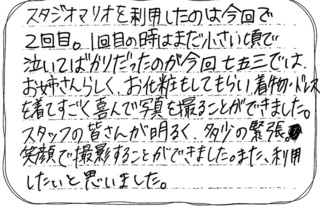 スタジオマリオを利用したのは今回で
2回目。1回目の時はまだ小さい頃で
泣いてばかりだったのが今回七五三では、
お姉さんらしく、お化粧もしてもらい着物・ドレス
を着てすごく喜んで写真を撮ることができました。
スタッフの皆さんが明るく、多少の緊張。
笑顔で撮影することができました。また、利用
したいと思いました。